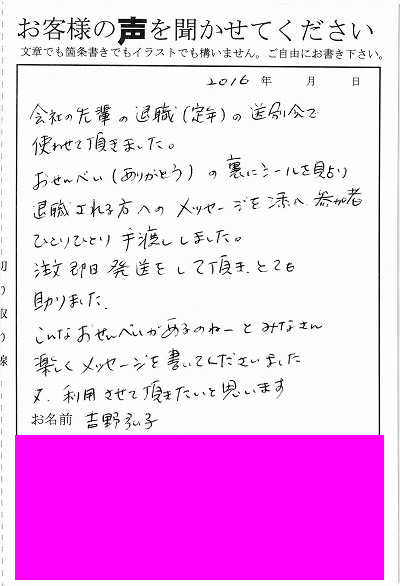 お客様の声を聞かせてください
文章でも箇条書きでもイラストでも構いません。ご自由にお書き下さい。
2016 年 月 日
会社の先輩の退職(定年)の送別会で
使わせて頂きました。
おせんべい(ありがとう)の裏にシールを貼り
退職される方へのメッセージを添へ 参加者
ひとりひとり手渡ししました。
注文即日発送をして頂き、とても
助りました。
こんなおせんべいがあるのねーとみなさん
楽しくメッセージを書いてくださいました
又、利用させて頂きたいと思います
お名前 吉野弘子
切り取り線